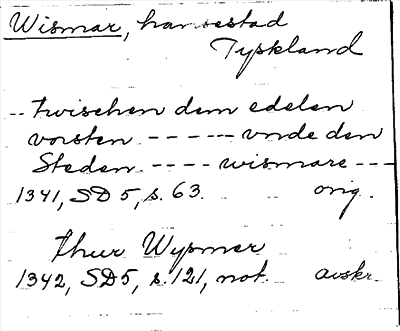 Wismar, hansestad
Tyskland
-- twischen dem edelen
vorsten ------ vnde den
Steden ---- wismare ---
1341, SD 5, s. 63. orig.
thur Wysmer
1342, SD5, s. 121, not. avskr.